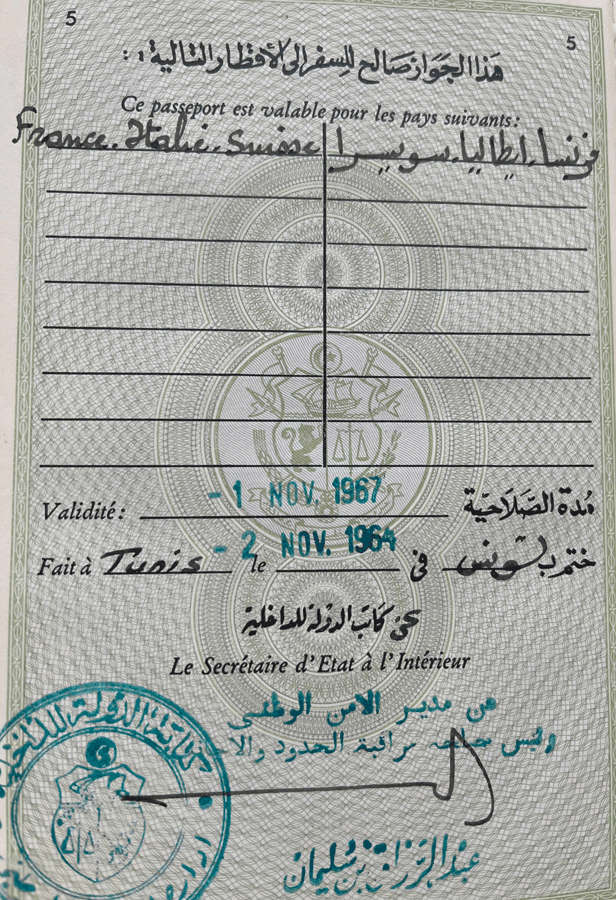 5
5
هذا الجواز صالح للسفر إلى الأقطار التالية :
Ce passeport est valable pour les pays suivants :
France. Italie. Suisse فرنسا. ايطاليا. سويسرا
Validité : - 1 NOV. 1967 مُدة الصَّلَاحيّة
Fait à Tunis le - 2 NOV. 1964 في ختم ب تونس
كاتب الدولة للداخلية
Le Secrétaire d'Etat à l'Intérieur
عن مدير الامن الوطني
رئيس مصلحة مراقبة الحدود
كتابة الدولة للداخلية
عبد الرزاق بن سليمان